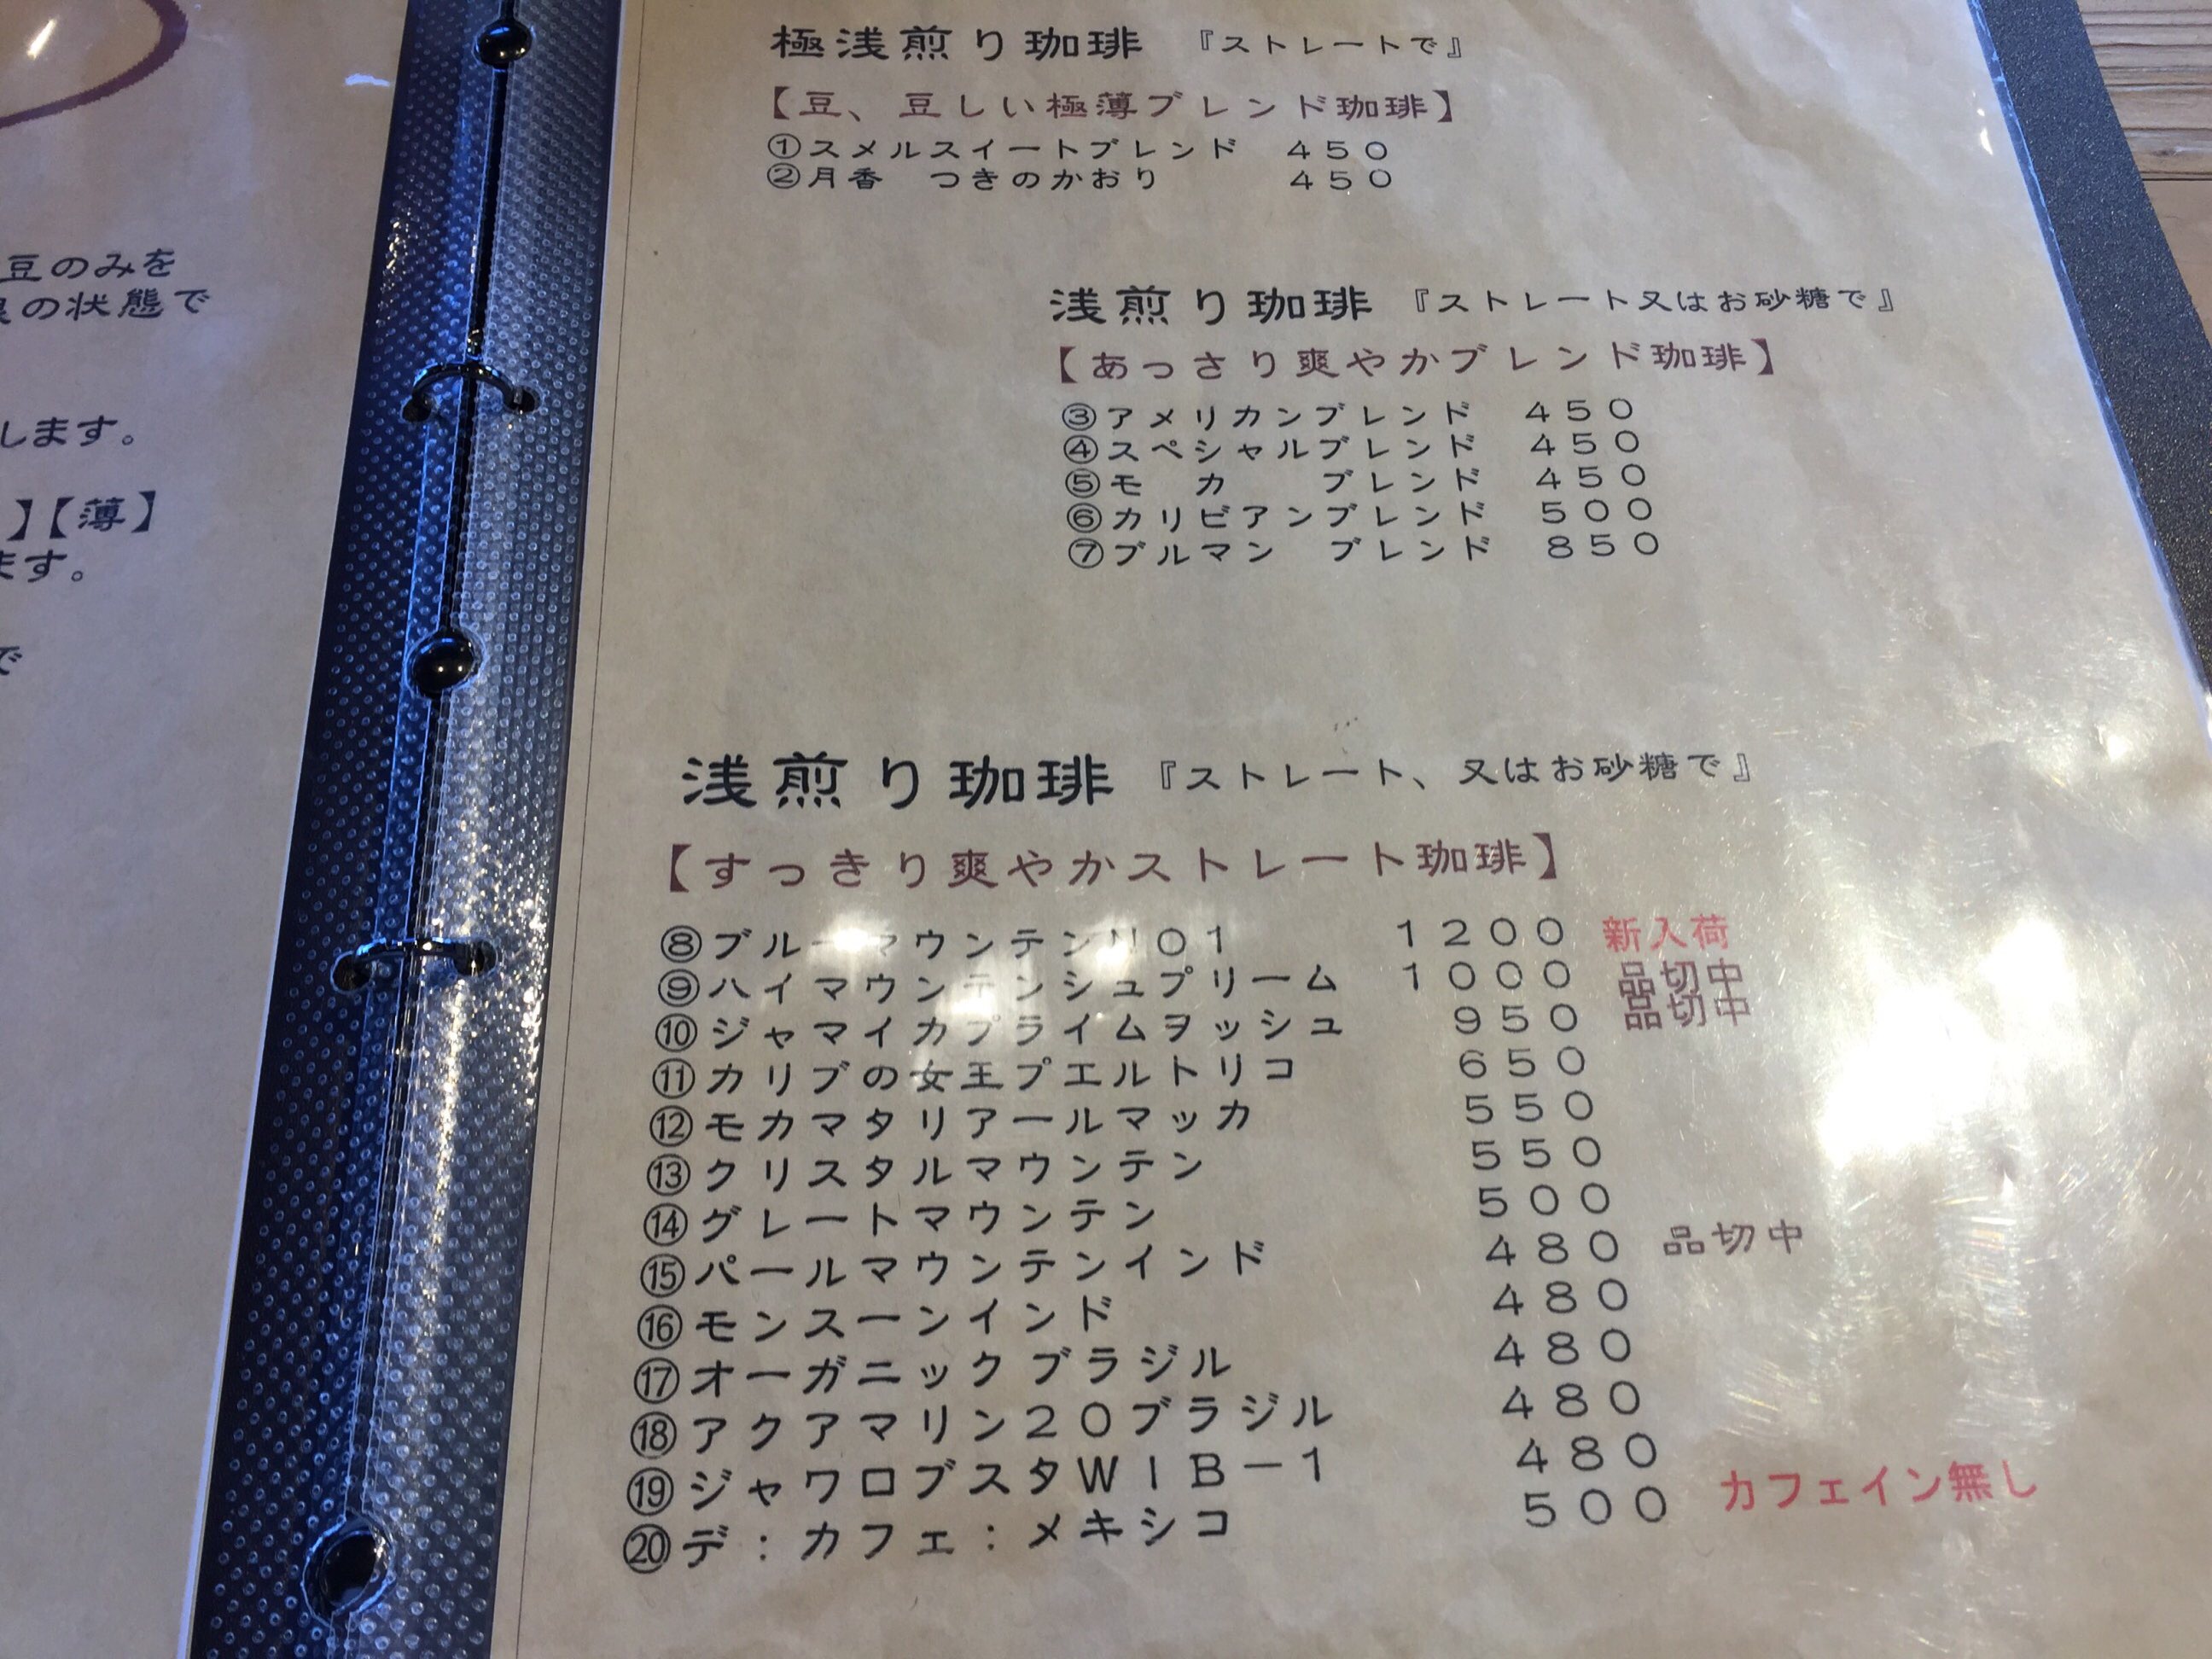 豆のみを
の状態で
します。
】【薄】
ます。
で
極浅煎り珈琲 『ストレートで』
【豆、豆しい極薄ブレンド珈琲】
①スメルスイートブレンド 450
②月香 つきのかおり 450
浅煎り珈琲 『ストレート又はお砂糖で』
【あっさり爽やかブレンド珈琲】
③アメリカンブレンド 450
④スペシャルブレンド 450
⑤モ カ ブレンド 450
⑥カリビアンブレンド 500
⑦ブルマン ブレンド 850
浅煎り珈琲 『ストレート、又はお砂糖で』
【すっきり爽やかストレート珈琲】
⑧ブルーマウンテンNO1 1200 新入荷
⑨ハイマウンテンシュプリーム 1000 品切中
⑩ジャマイカプライムヲッシュ 950 品切中
⑪カリブの女王プエルトリコ 650
⑫モカマタリアールマッカ 550
⑬クリスタルマウンテン 550
⑭グレートマウンテン 500
⑮パールマウンテンインド 480 品切中
⑯モンスーンインド 480
⑰オーガニックブラジル 480
⑱アクアマリン20ブラジル 480
⑲ジャワロブスタWIB-1 480
⑳デ:カフェ:メキシコ 500 カフェイン無し